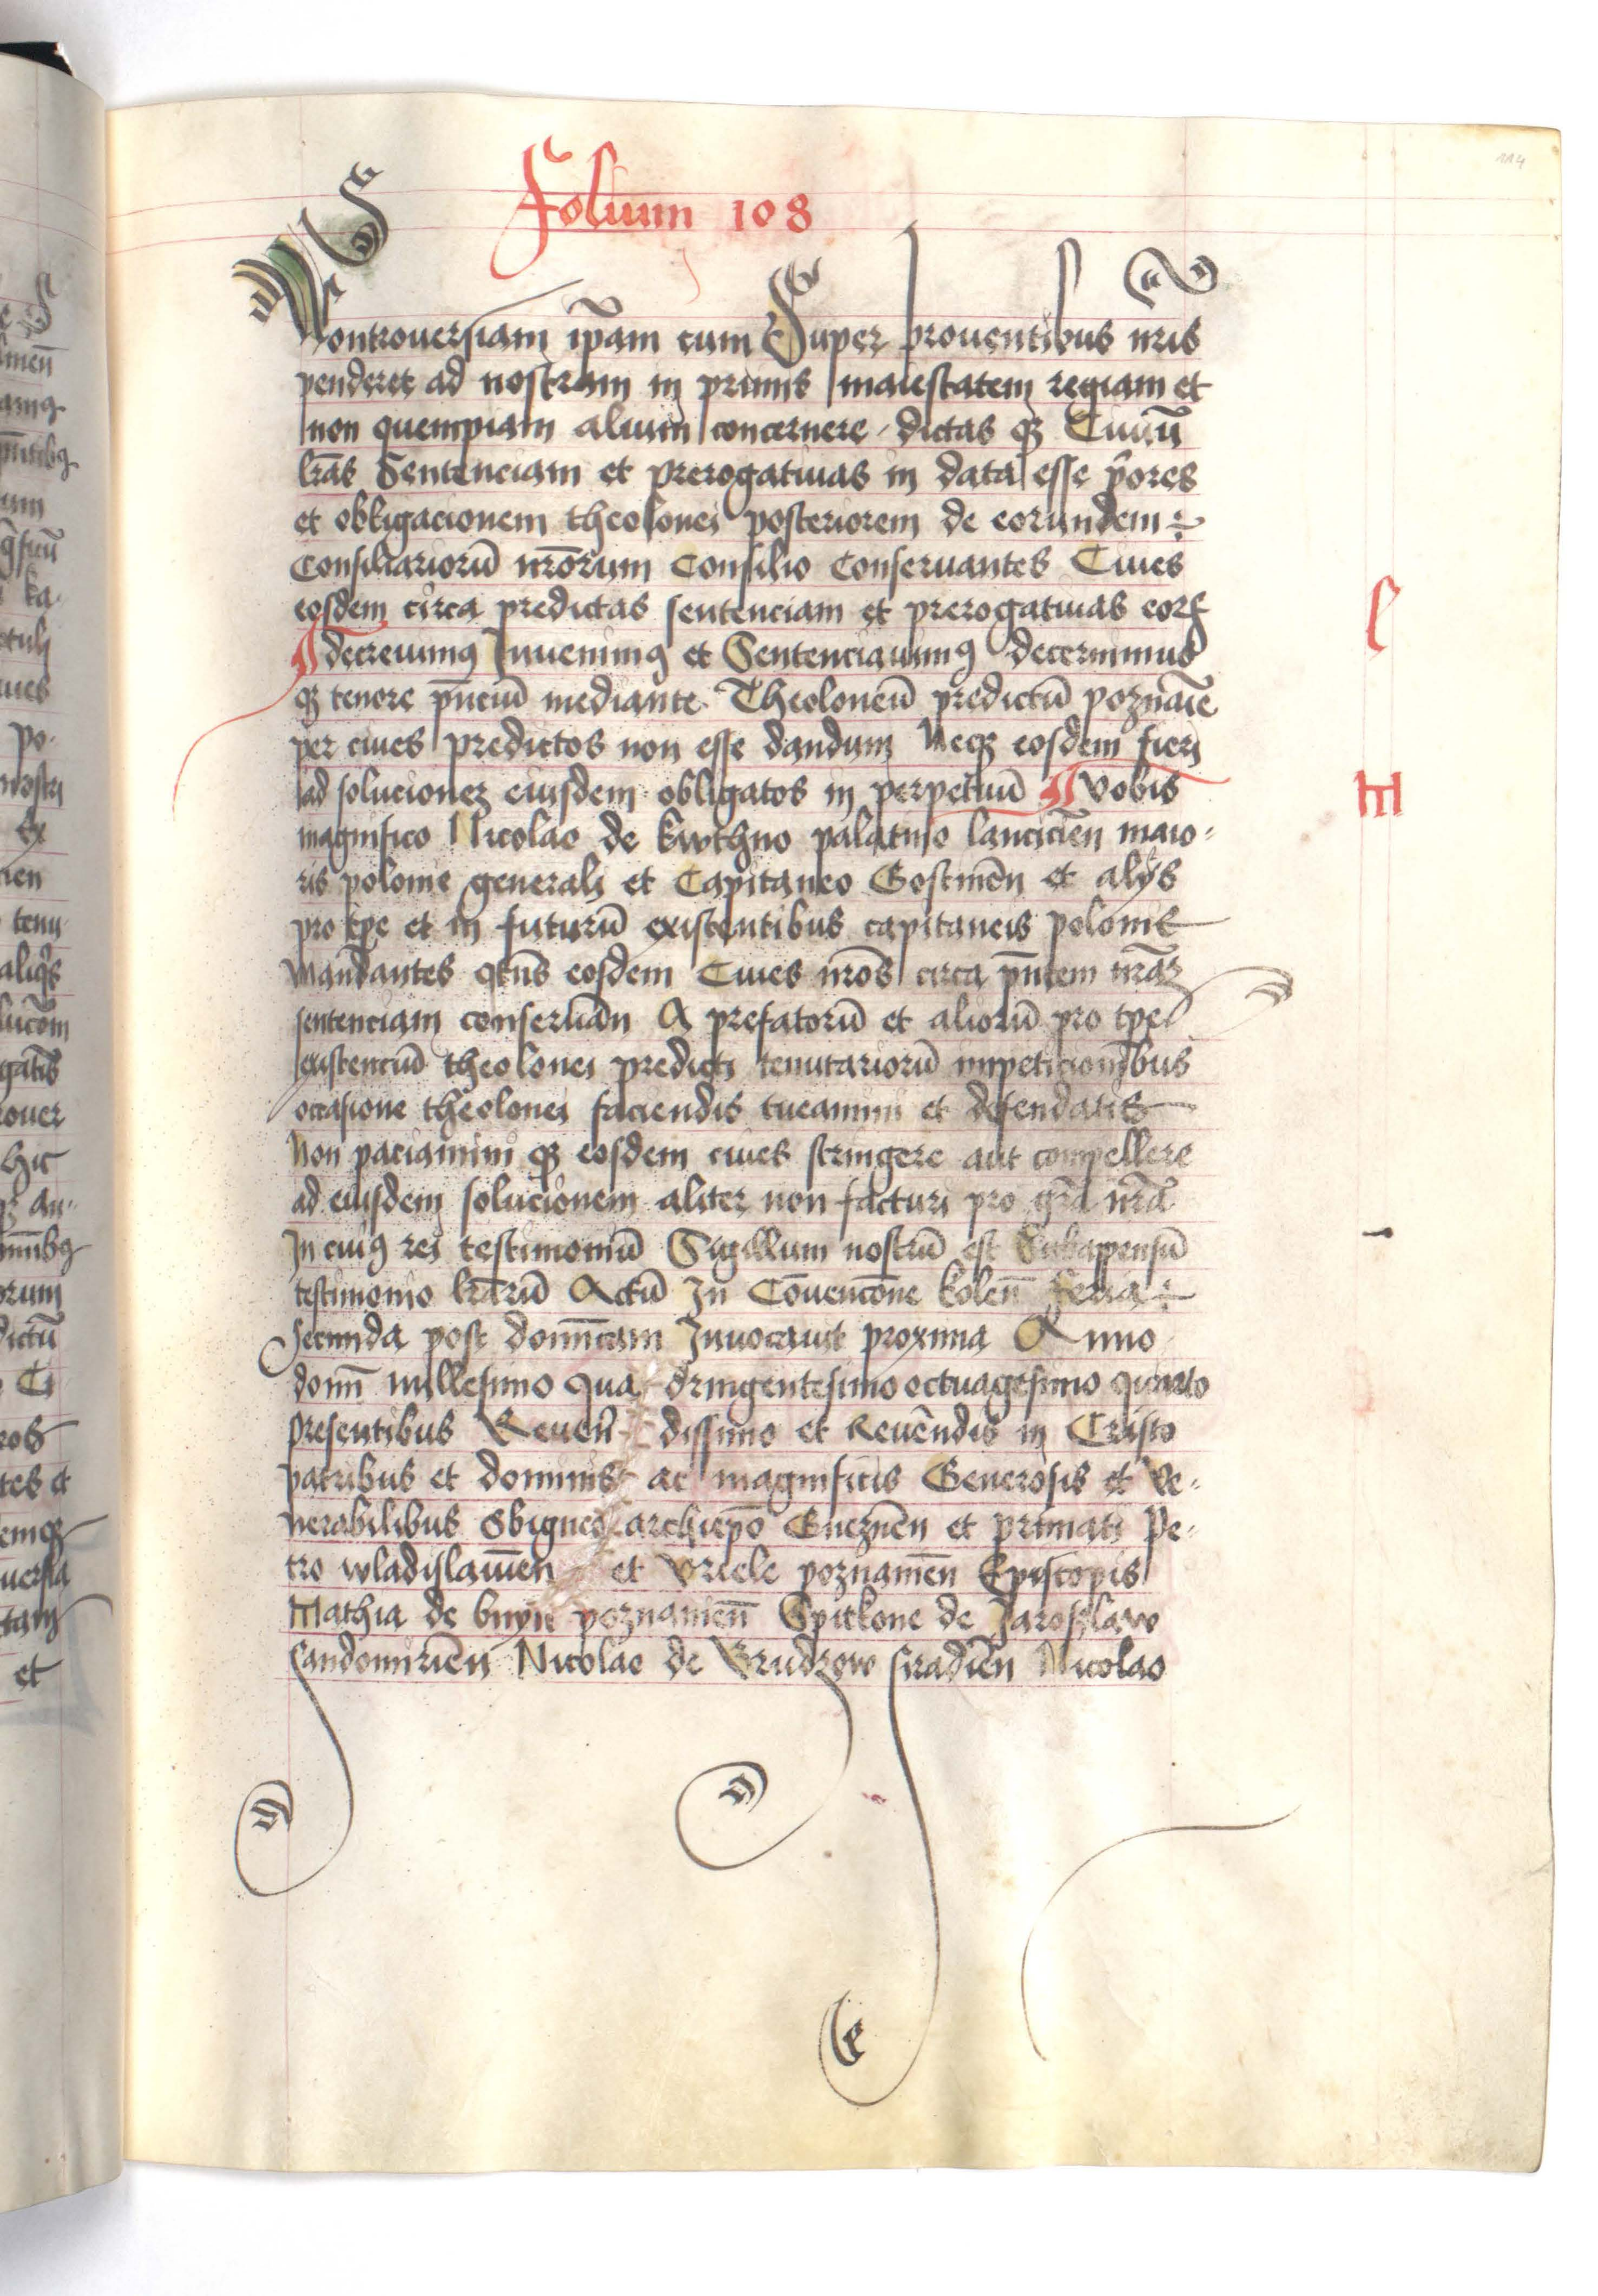 114
Folium 108
Controuersiam ip̄am cum Super prouentibus nr̄is
penderet ad nostram in primis maiestatem regiam et
non quempiam alium concernere dictas qȝ Ciuiū
lr̄as Sentenciam et prerogatiuas in data esse p̄ores
et obligacionem theolonei posteriorem de eorundem
Consiliariorū nr̄orum Consilio Conseruantes Ciues
eosdem circa predictas sentenciam et prerogatiuas eorꝝ
¶ decreuimꝯ Inuenimꝯ et Sentenciauimꝯ decernimus
qȝ tenore p̄nciū mediante Theoloneū predictū poznan̄e
per ciues predictos non esse dandum Neqȝ eosdem fieri
ad solucioneȝ eiusdem obligatos in perpetuū ¶ Vobis
magnifico Nicolao de kwthno palatino lancicien̄ maio-
ris polonie generali et Capitaneo Gostinen̄ et alijs
pro tp̄e et in futurū existentibus capitaneis polonie
Mandantes qt̄us eosdem Ciues nr̄os circa p̄ntem nr̄aȝ
sentenciam conseruan̄ A prefatorū et aliorū pro tp̄e
existenciū theolonei predicti tenutariorū impeticionibus
occasione theolonei faciendis tueamini et defendatis
Non paciamini qȝ eosdem ciues stringere aut compellere
ad eiusdem solucionem aliter non facturi pro gr̄a nr̄a
In cuiꝯ rei testimoniū Sigillum nostrū est Subappensū
testimonio lr̄arū Actū In Cōuencōne kolen̄ feria
secunda post domīcam Inuocauit proxima Anno
domī millesimo qua dringentesimo octuagesimo quarto
presentibus Reueren̄ dissimo et Reuēndis in Cristo
patribus et dominis ac magnificis Generosis et Ve-
nerabilibus Sbigneo archiep̄o Gnezn̄en et primati Pe-
tro wladislauien̄ et Vriele poznanien̄ Episcopis
Mathia de bnyn poznanien̄ Spitkone de Jaroslavo
Sandomirien̄ Nicolao de Brudzewo siradien̄ Nicolao
l
m